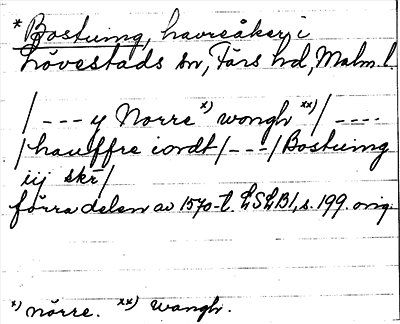 * Bostuing, havreåker i
Lövestads sn, Färs hd, Malm. l.
/ - - - y Norre x) wongh xx) / - - - -
/ hauffre iordt / - - - / Bostuing
iij skr /
förra delen av 1570-t. LSLB1, s. 199. orig.
x) nörre. xx) wangh.